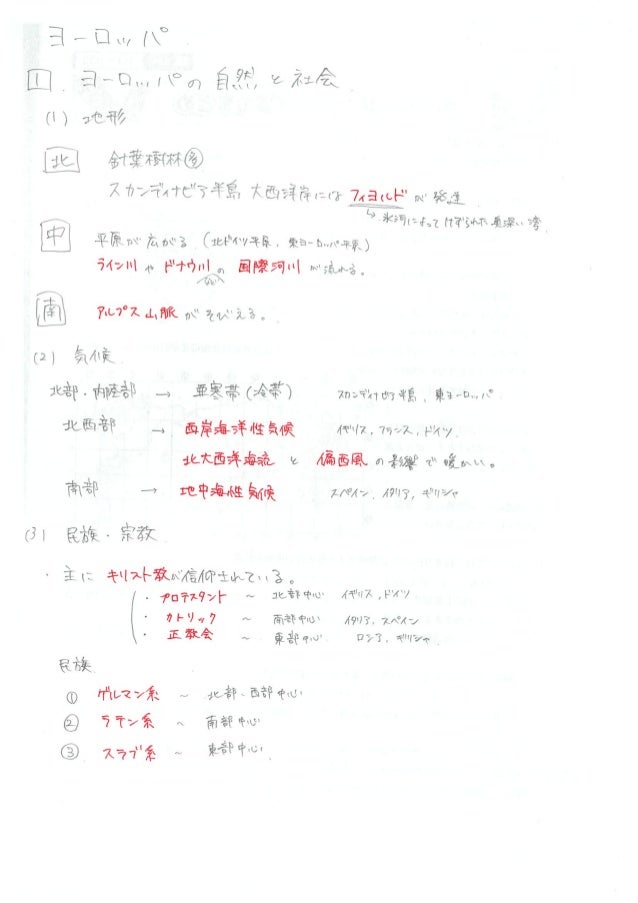 ヨーロッパ
1. ヨーロッパの自然と社会
(1) 地形
北 針葉樹林多
スカンディナビア半島 大西洋岸にはフィヨルドが発達
↳ 氷河によってけずられた奥深い湾
中 平原が広がる (北ドイツ平原, 東ヨーロッパ平原)
ライン川やドナウ川の国際河川が流れる。
などの
南 アルプス山脈がそびえる。
(2) 気候
北部・内陸部 → 亜寒帯(冷帯) スカンディナビア半島, 東ヨーロッパ
北西部 → 西岸海洋性気候 イギリス, フランス, ドイツ
北大西洋海流と偏西風の影響で暖かい。
南部 → 地中海性気候 スペイン, イタリア, ギリシャ
(3) 民族・宗教
・主にキリスト教が信仰されている。
・プロテスタント ~ 北部中心 イギリス, ドイツ
・カトリック ~ 南部中心 イタリア, スペイン
・正教会 ~ 東部中心 ロシア, ギリシャ
民族
① ゲルマン系 ~ 北部~西部中心
② ラテン系 ~ 南部中心
③ スラブ系 ~ 東部中心